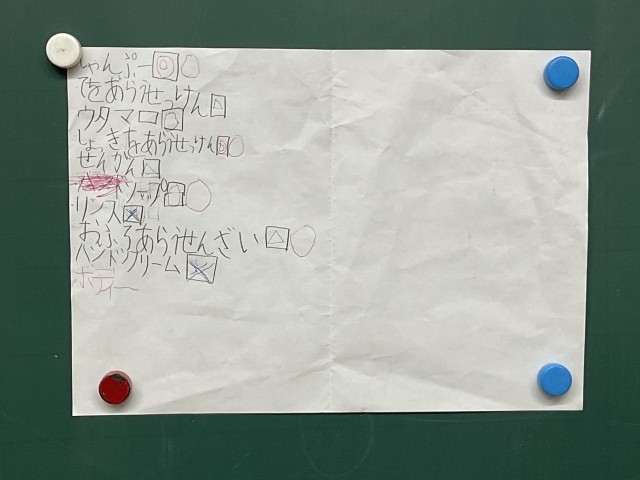 しゃんぷー ◎ ○
てをあらうせっけん △
ウタマロ ○
しょっきをあらうせっけん ◎ ○
せんがん △
ソープ ○
リンス ×
おふろあらうせんざい △ ○
ハンドクリーム ×
ボディー